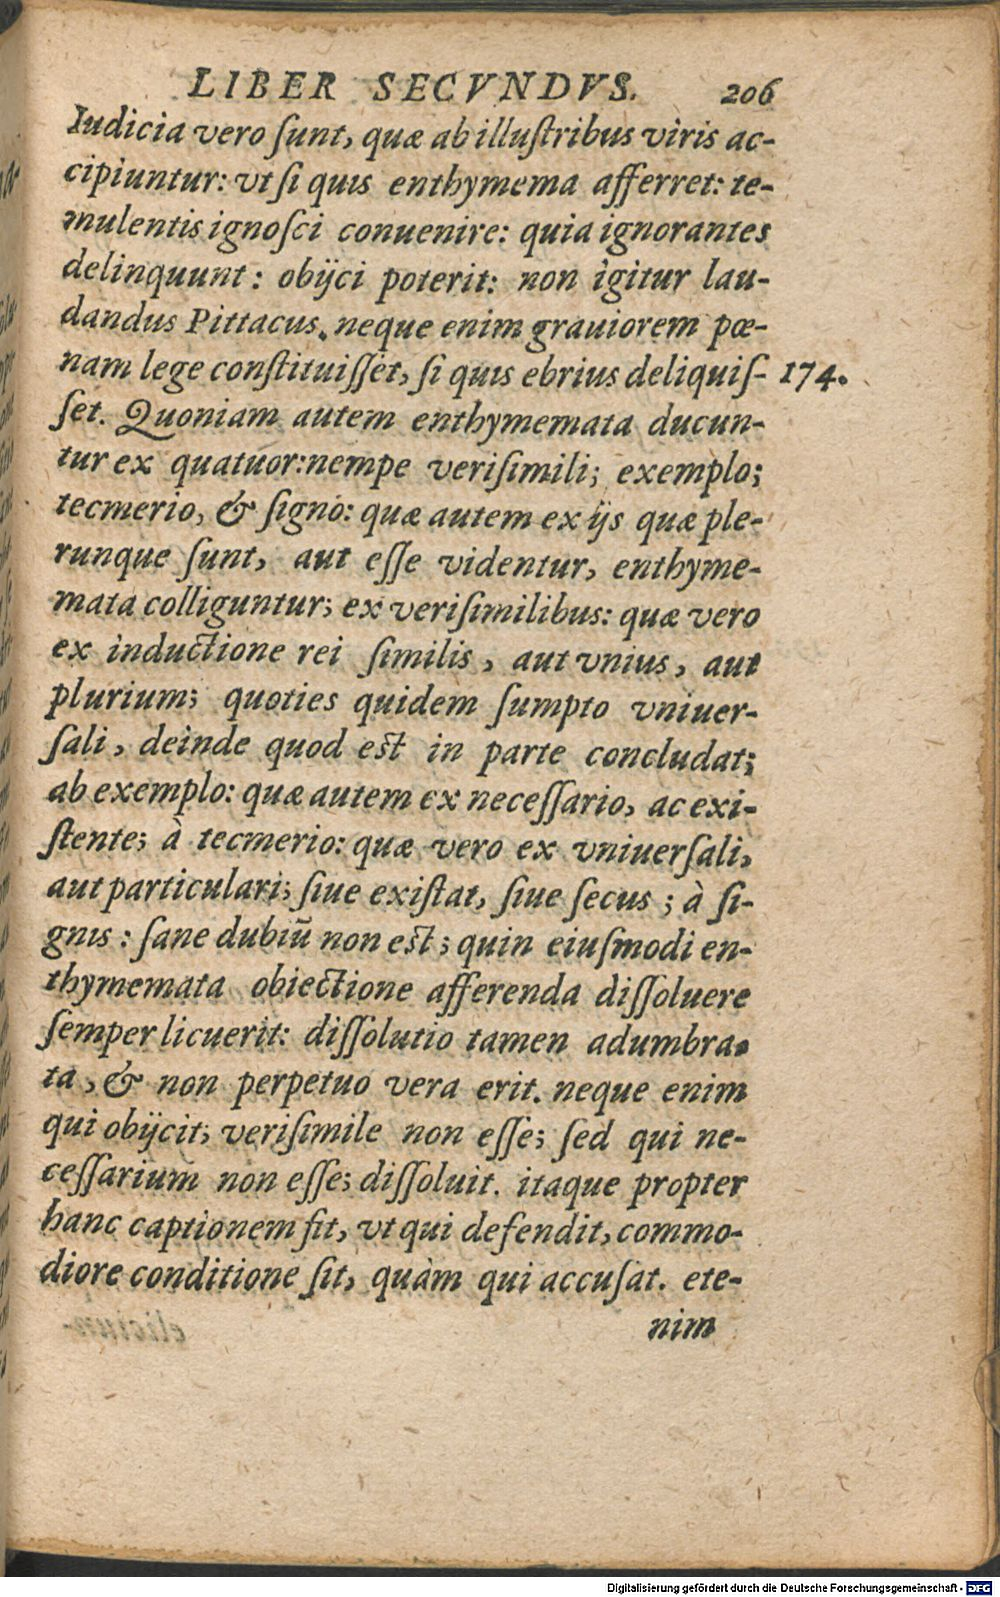 LIBER SECVNDVS. 206
Iudicia vero ſunt, quæ ab illuſtribus viris ac-
cipiuntur: vt ſi quis enthymema afferret: te-
mulentis ignoſci conuenire: quia ignorantes
delinquunt: obijci poterit: non igitur lau-
dandus Pittacus. neque enim grauiorem pœ-
nam lege conſtituiſſet, ſi quis ebrius deliquiſ- 174.
ſet. Quoniam autem enthymemata ducun-
tur ex quatuor: nempe veriſimili; exemplo;
tecmerio, & ſigno: quæ autem ex ijs quæ ple-
runque ſunt, aut eſſe videntur, enthyme-
mata colliguntur; ex veriſimilibus: quæ vero
ex inductione rei ſimilis, aut vnius, aut
plurium; quoties quidem ſumpto vniuer-
ſali, deinde quod est in parte concludat;
ab exemplo: quæ autem ex neceſſario, ac exi-
ſtente; à tecmerio: quæ vero ex vniuerſali,
aut particulari; ſiue exiſtat, ſiue ſecus; à ſi-
gnis: ſane dubiũ non est; quin eiuſmodi en-
thymemata obiectione afferenda diſſoluere
ſemper licuerit: diſſolutio tamen adumbra-
ta, & non perpetuo vera erit. neque enim
qui obijcit; veriſimile non eſſe; ſed qui ne-
ceſſarium non eſſe; diſſoluit. itaque propter
hanc captionem fit, vt qui defendit, commo-
diore conditione ſit, quàm qui accuſat. ete-
nim
Digitalisierung gefördert durch die Deutsche Forschungsgemeinschaft - DFG